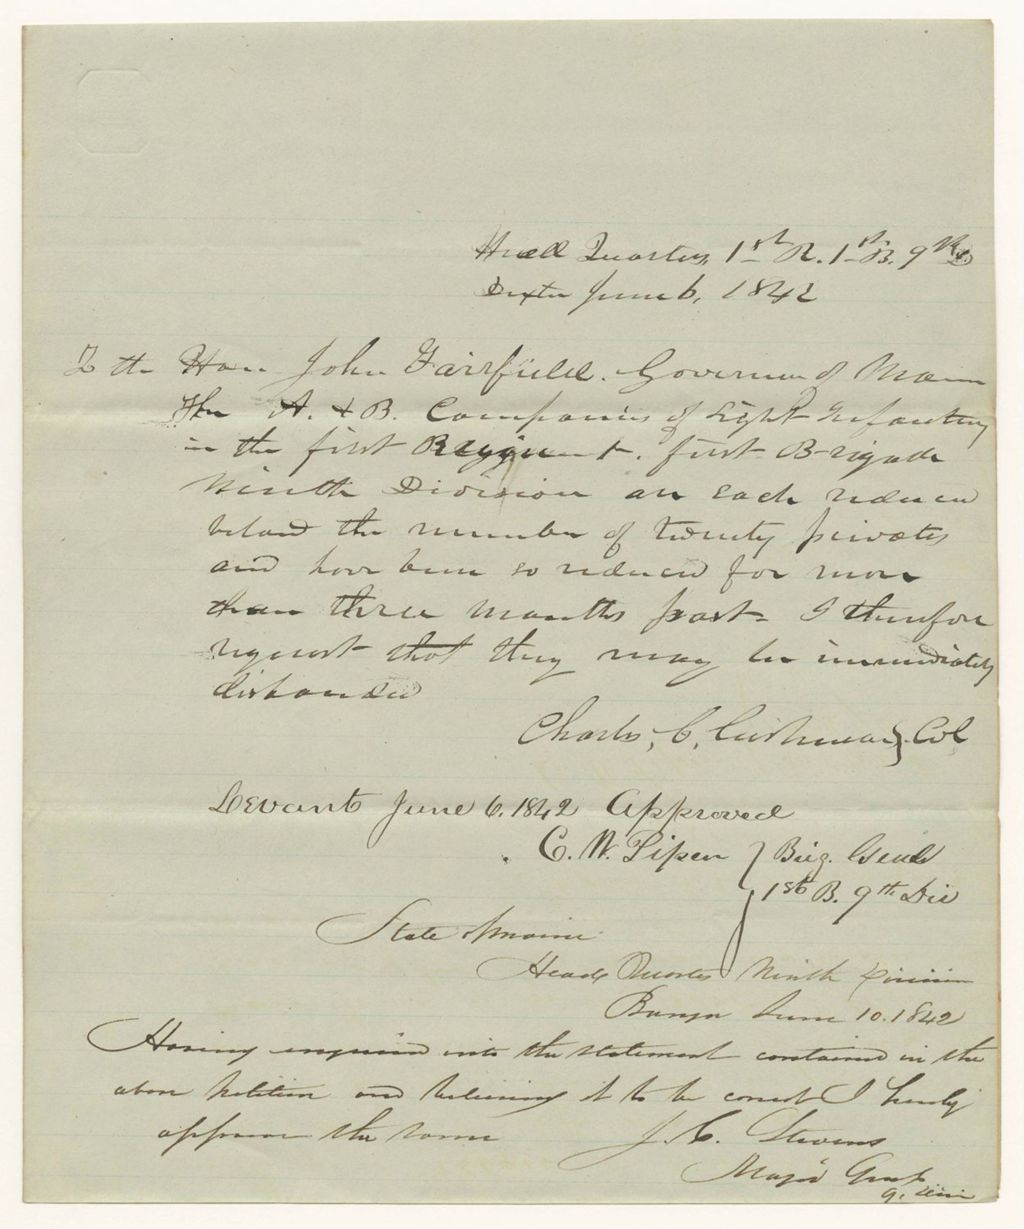 Head Quarters, 1st R. 1st B. 9th D
Dexter June 6, 1842
To the Hon. John Fairfield. Governor of Maine
The A. & B. Companies of Light Infantry
in the first Regiment. first Brigade
Ninth Division are each reduced
below the number of twenty privates
and have been so reduced for more
than three months past I therefore
request that they may be immediately
disbanded
Charles, C, Cushman } Col
Levant June 6. 1842 Approved
C. W. Piper } Brig. Genl
1st B. 9th Div
State of Maine
Head Quarters Ninth Division
Bangor June 10. 1842
Having enquired into the statement contained in the
above petition and believing it to be correct I hereby
approve the same J. C. Stevens
Major Genl
9. Divi